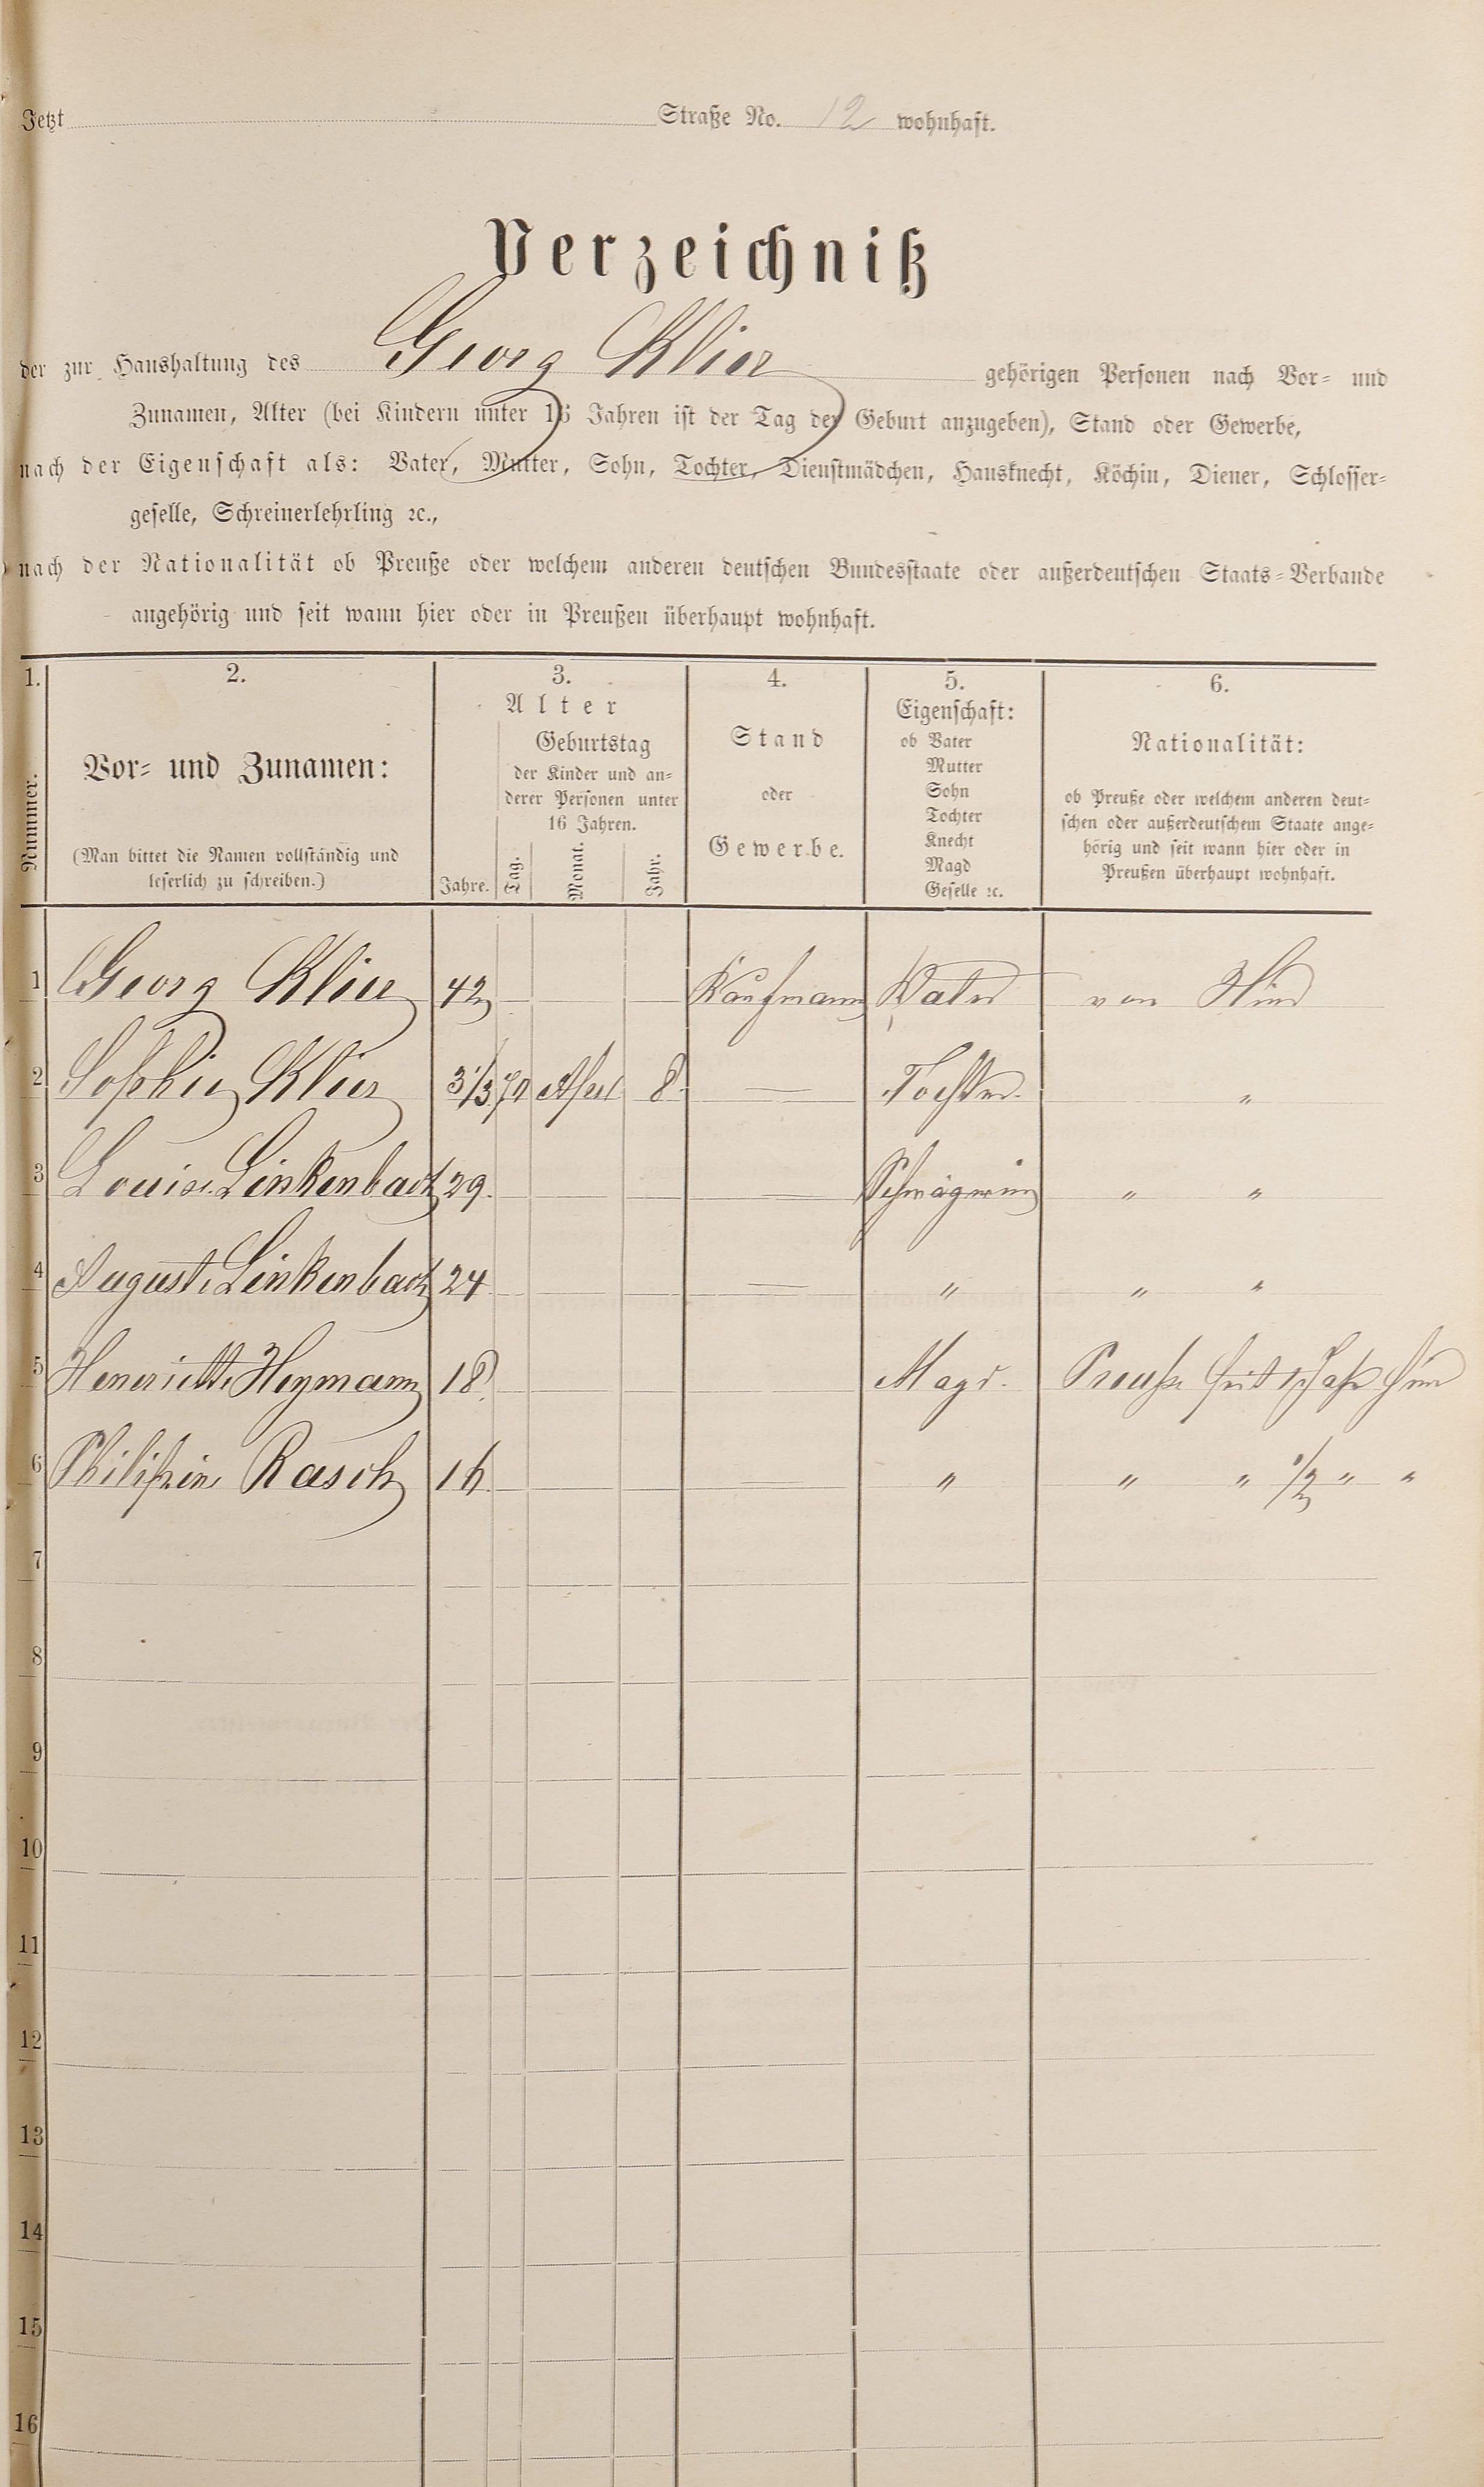 Jetzt Straße No. 12 wohnhaft.
Verzeichniß
der zur Haushaltung des Georg Klier gehörigen Personen nach Vor- und
Zunamen, Alter (bei Kindern unter 16 Jahren ist der Tag der Geburt anzugeben), Stand oder Gewerbe,
nach der Eigenschaft als: Vater, Mutter, Sohn, Tochter, Dienstmädchen, Hausknecht, Köchin, Diener, Schlosser-
geselle, Schreinerlehrling ꝛc.,
nach der Nationalität ob Preuße oder welchem anderen deutschen Bundesstaate oder außerdeutschen Staats-Verbande
angehörig und seit wann hier oder in Preußen überhaupt wohnhaft.
1. 2. 3. 4. 5. 6.
Nummer.
Vor- und Zunamen:
(Man bittet die Namen vollständig und
leserlich zu schreiben.)
Alter
Jahre.
Geburtstag
der Kinder und an-
derer Personen unter
16 Jahren.
Tag. Monat. Jahr.
Stand
oder
Gewerbe.
Eigenschaft:
ob Vater
Mutter
Sohn
Tochter
Knecht
Magd
Geselle ꝛc.
Nationalität:
ob Preuße oder welchem anderen deut-
schen oder außerdeutschem Staate ange-
hörig und seit wann hier oder in
Preußen überhaupt wohnhaft.
1 Georg Klier 42 Kaufmann Vater von
2 Sophie Klier 3 1/3 70 April 8 — Tochter "
3 Louise Linkenbach 29. — Schwägerin " "
4 Auguste Linkenbach 24 — " " "
5 Henriette Heymann 18 Magd. Preuße seit 1 Jahr hier
6 Philippine Rasch 16 — " " " 1/2 " "
7
8
9
10
11
12
13
14
15
16